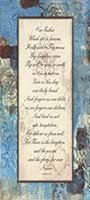 Our Father
Which art in heaven,
Hallowed be Thy name
Thy kingdom come
Thy will be done in earth
as it is in heaven
Give us this day
our daily bread
And forgive us our debts
as we forgive our debtors
And lead us not
into temptation
but deliver us from evil
For Thine is the kingdom
and the power
and the glory for ever
Amen